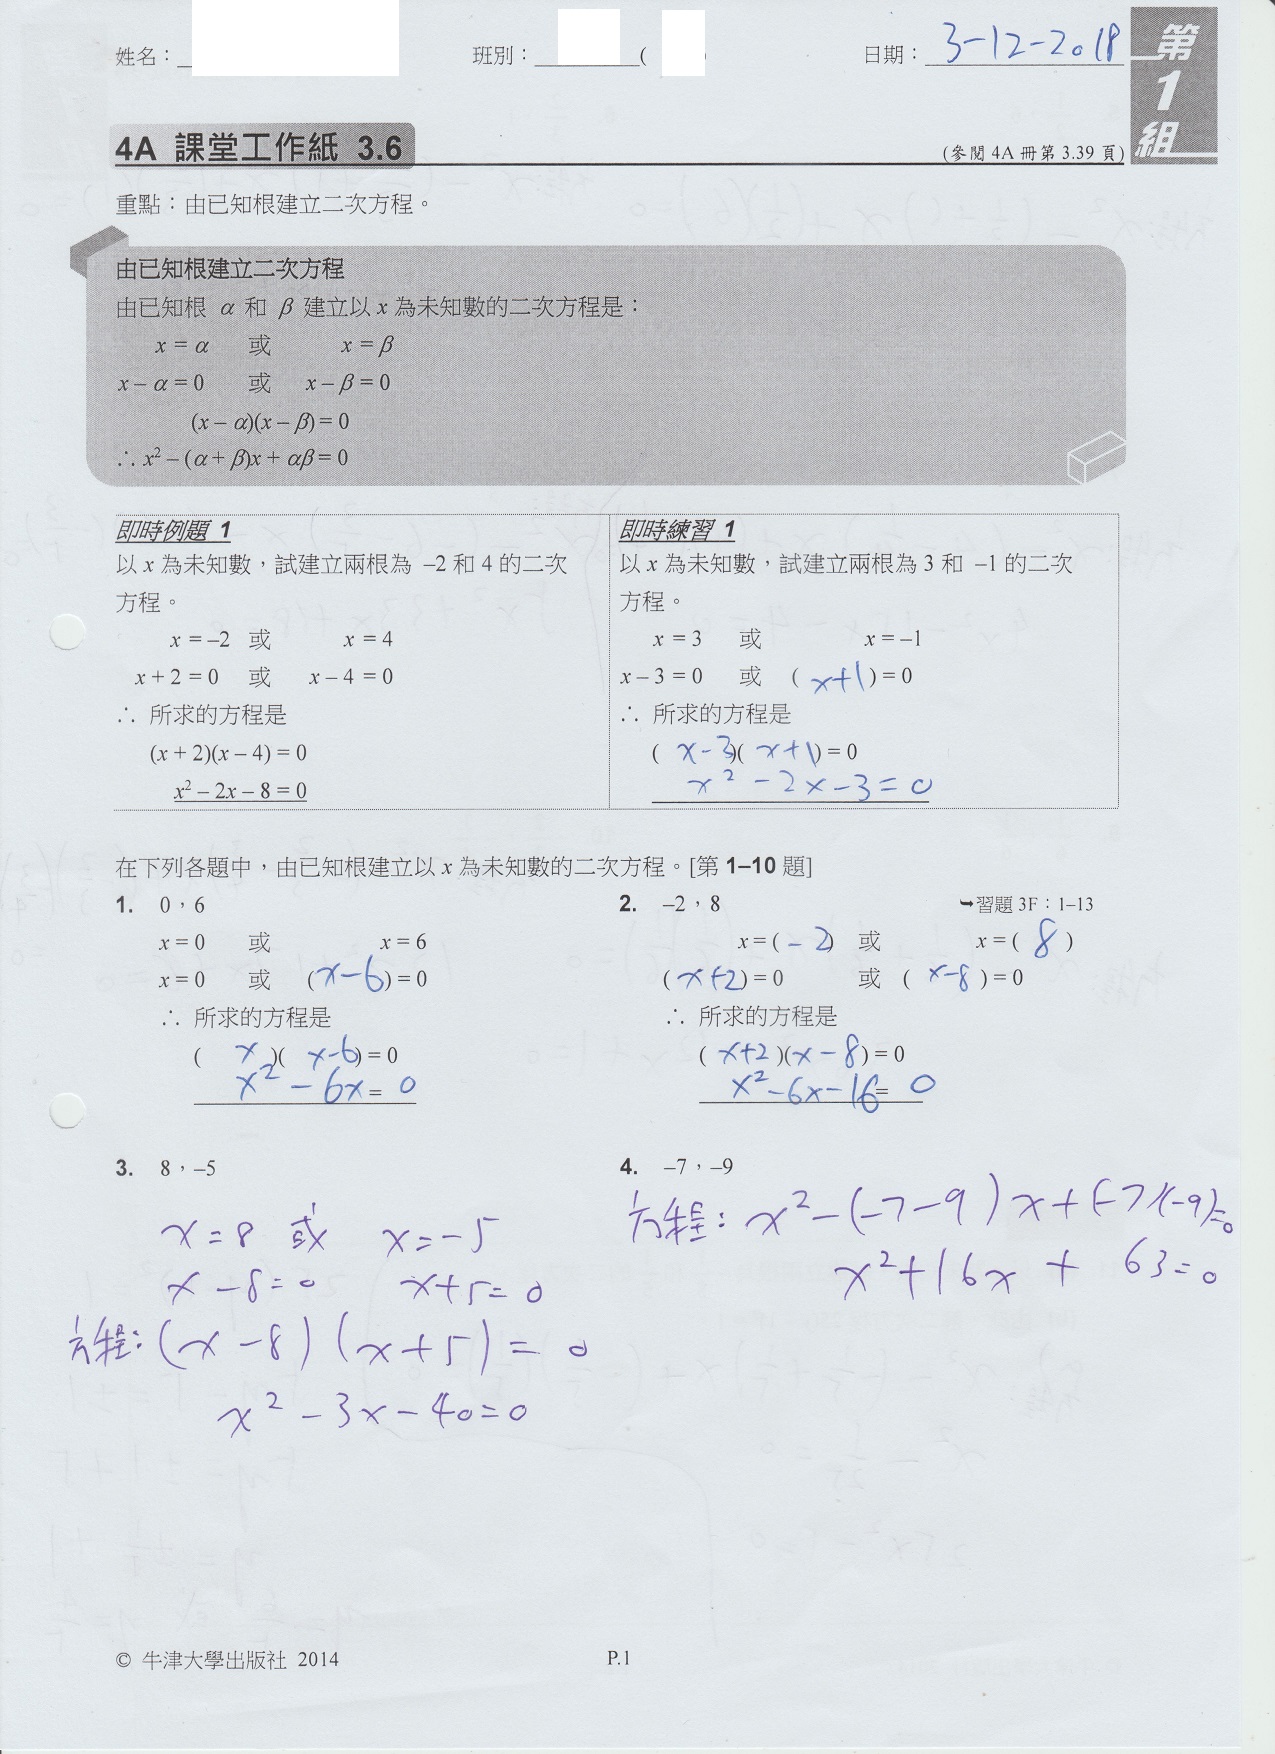 姓名：
班別： (
日期： 3-12-2018
第1組
4A 課堂工作紙 3.6
(參閱 4A 冊第 3.39 頁)
重點：由已知根建立二次方程。
由已知根建立二次方程
由已知根 α 和 β 建立以 x 為未知數的二次方程是：
x = α 或 x = β
x – α = 0 或 x – β = 0
(x – α)(x – β) = 0
∴ x² – (α + β)x + αβ = 0
即時例題 1
以 x 為未知數，試建立兩根為 –2 和 4 的二次
方程。
x = –2 或 x = 4
x + 2 = 0 或 x – 4 = 0
∴ 所求的方程是
(x + 2)(x – 4) = 0
x² – 2x – 8 = 0
即時練習 1
以 x 為未知數，試建立兩根為 3 和 –1 的二次
方程。
x = 3 或 x = –1
x – 3 = 0 或 ( x+1 ) = 0
∴ 所求的方程是
( x-3 )( x+1 ) = 0
x² - 2x - 3 = 0
在下列各題中，由已知根建立以 x 為未知數的二次方程。[第 1–10 題]
1. 0，6
x = 0 或 x = 6
x = 0 或 ( x-6 ) = 0
∴ 所求的方程是
( x )( x-6 ) = 0
x² - 6x = 0
2. –2，8 ➥習題 3F：1–13
x = ( -2 ) 或 x = ( 8 )
( x+2 ) = 0 或 ( x-8 ) = 0
∴ 所求的方程是
( x+2 )( x-8 ) = 0
x² - 6x - 16 = 0
3. 8，–5
x = 8 或 x = -5
x - 8 = 0 x + 5 = 0
方程: (x - 8) (x + 5) = 0
x² - 3x - 40 = 0
4. –7，–9
方程: x² - (-7-9)x + (-7)(-9) = 0
x² + 16x + 63 = 0
© 牛津大學出版社 2014
P.1